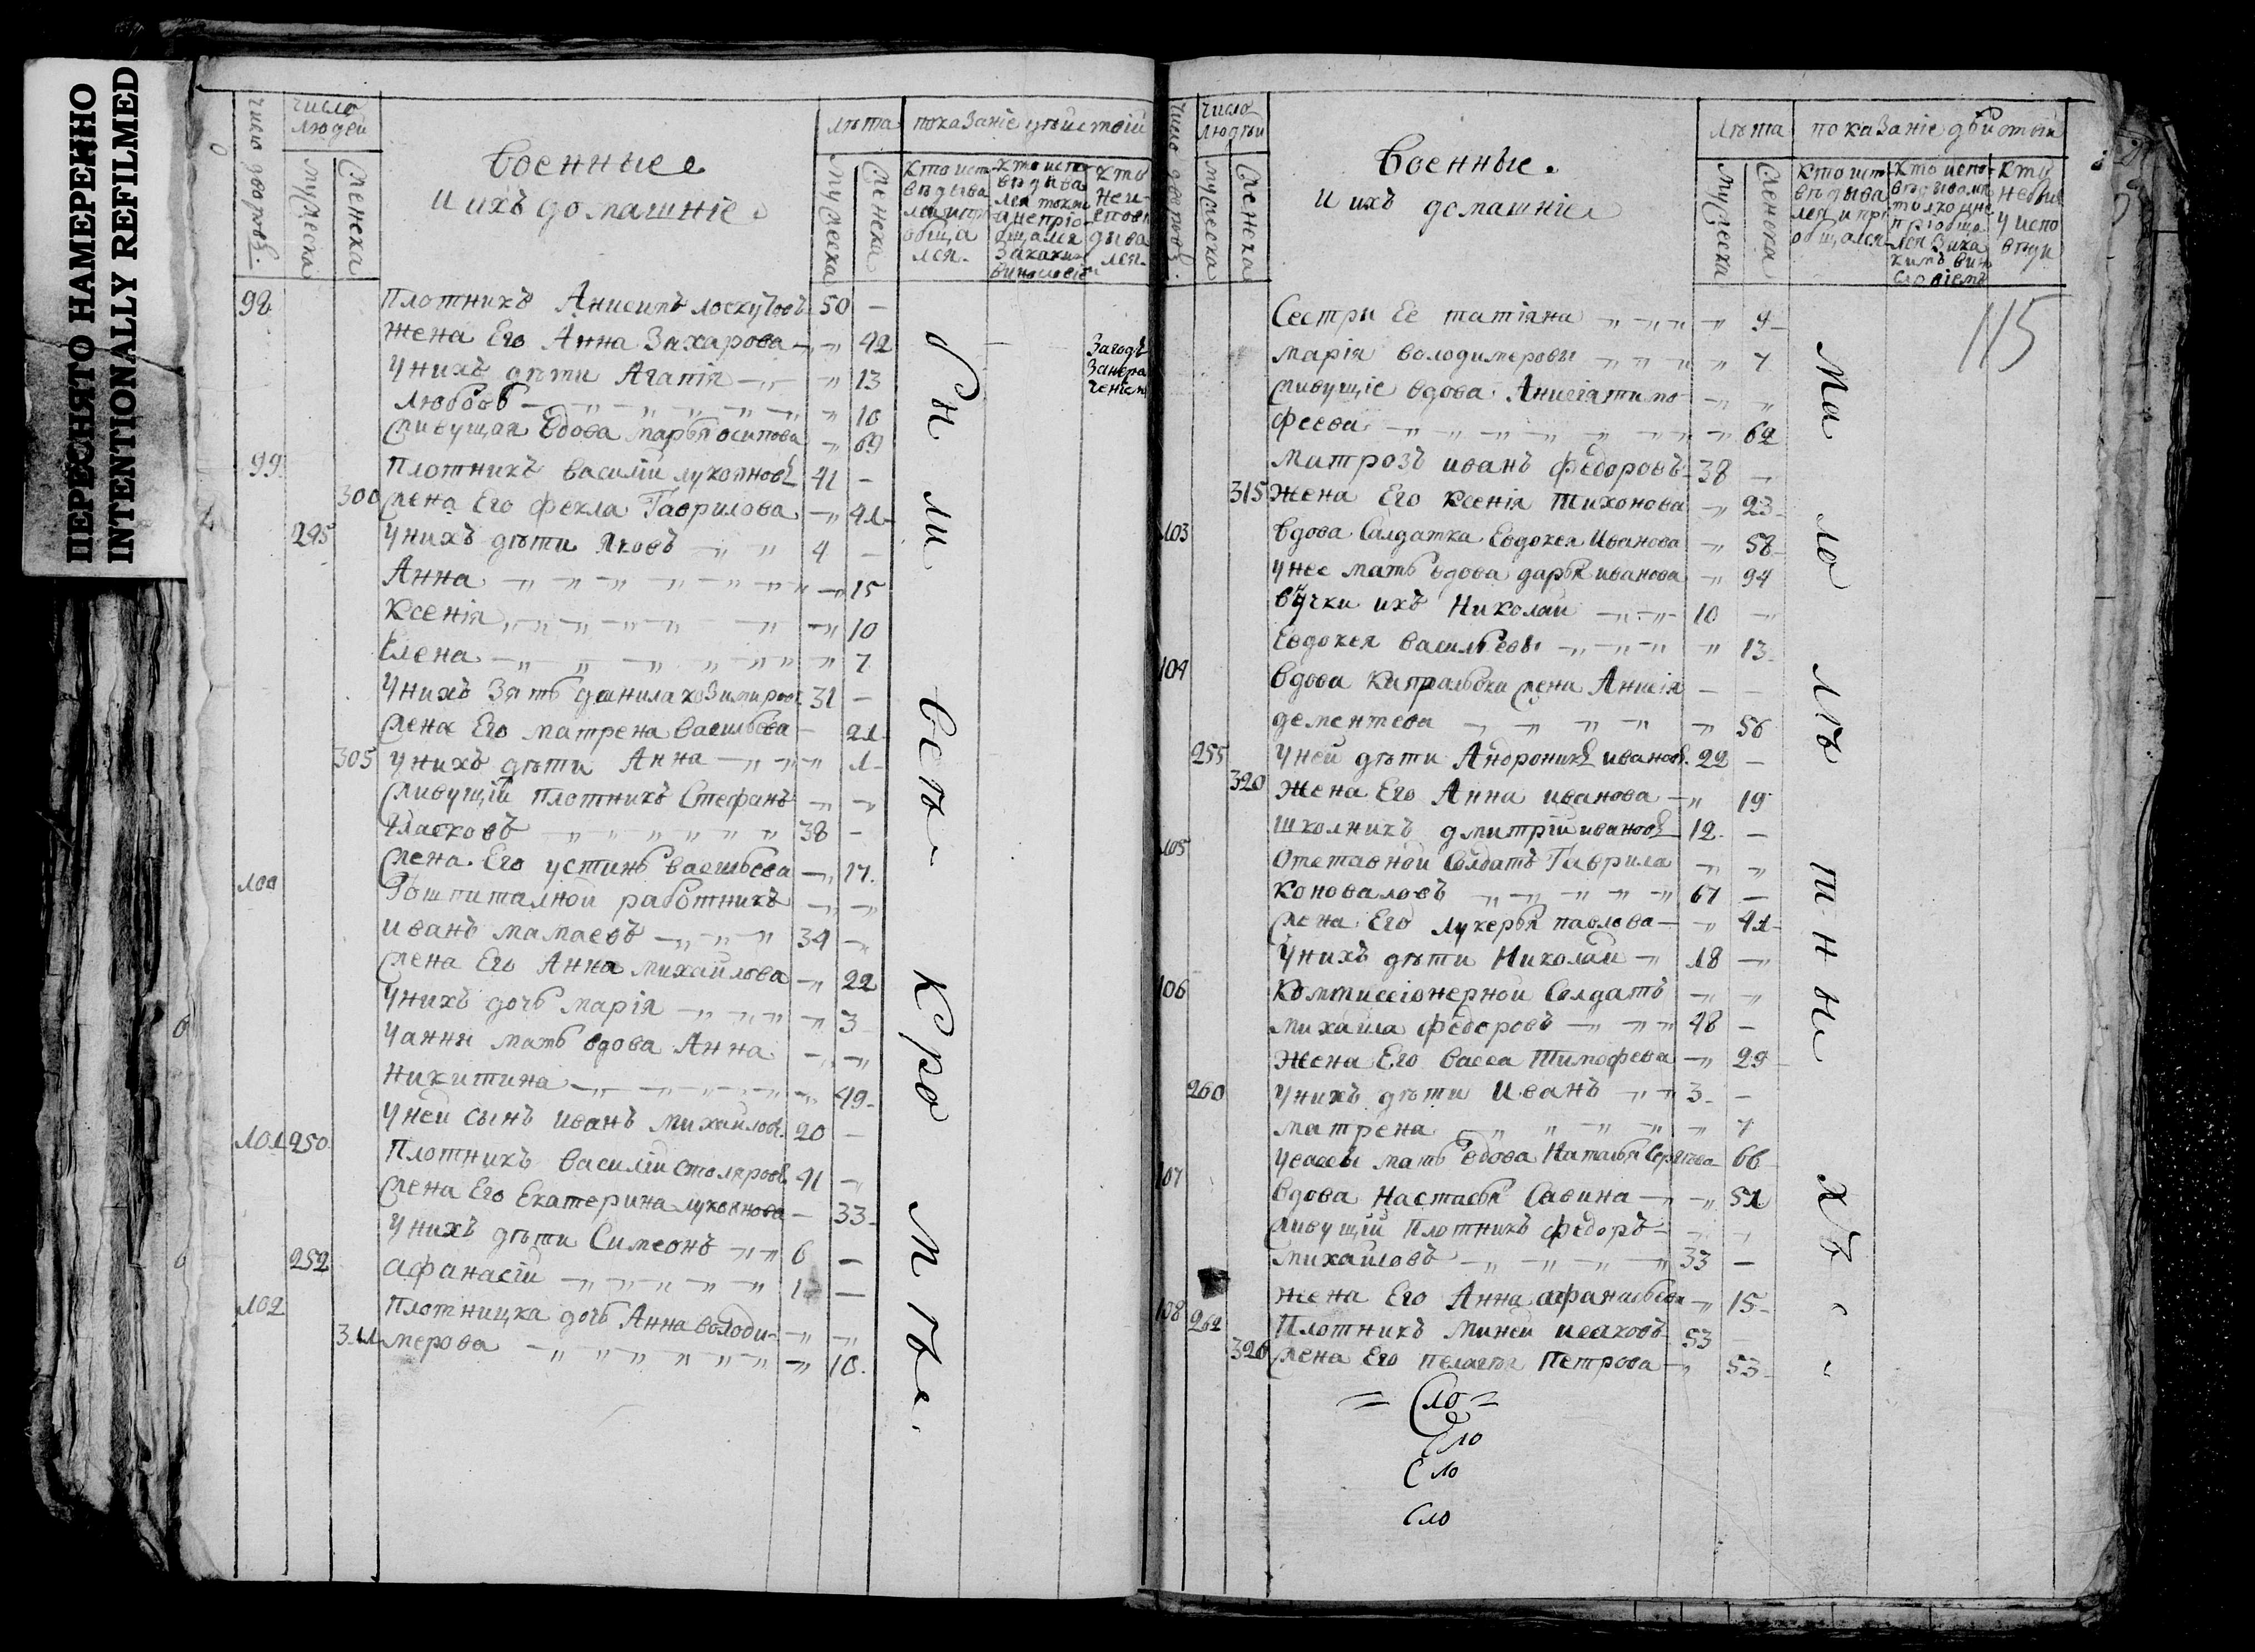 ПЕРЕСНЯТО НАМЕРЕННО
INTENTIONALLY REFILMED
число дворовъ.
число людей
мужеска
женска
военные
и ихъ домашніе
лѣта
мужеска
женска
показаніе дѣйствій
98 Плотникъ Анисимъ Лоскутовъ 50 —
жена Его Анна Захарова — „ 42
у нихъ дѣти Агапія — „ 13
Любовь — „ 10
живущая вдова Марья Осипова „ 69
99 Плотникъ Василій Лукояновъ 41 —
300 жена Его Фекла Гаврилова — „ 41
245 у нихъ дѣти Яковъ 4 —
Анна — „ 15
Ксенія — „ 10
Елена — „ 7
у нихъ зять Данила Козимировъ 31 —
жена Его Матрена Васильева — 21
305 у нихъ дѣти Анна — „ 1
живущій плотникъ Стефанъ
Гласковъ 38 —
жена Его Устинья Васильева — „ 17
100 Гошпиталной работникъ
Иванъ Мамаевъ 34 —
жена Его Анна Михайлова — „ 22
у нихъ дочь Марія — „ 3
у Анны мать вдова Анна
Никитина — „ 49
у ней сынъ Иванъ Михайловъ 20 —
101 250 Плотникъ Василій Столяровъ 41 —
жена Его Екатерина Лукоянова — 33
у нихъ дѣти Симеонъ 6 —
252 Афанасій 1 —
102 Плотницка дочь Анна Володи-
311 мерова — „ 10
были
у
все-
Кро
мѣ
число дворовъ.
число людей
мужеска
женска
военные.
и ихъ домашніе
лѣта
мужеска
женска
показаніе дѣйствій
115
Сестры Ее Татіяна „ 9
Марія Володимеровы „ 7
живущіе вдова Анисія Тимо
феева „ 62
Матрозъ Иванъ Федоровъ 38 —
315 жена Его Ксенія Тихонова „ 23
103 вдова Салдатка Евдокея Иванова „ 58
у нее мать вдова Дарья Иванова „ 94
внучки ихъ Николай 10
Евдокея Васильевы „ 13
104 вдова Капральска жена Анисія — —
Дементева „ 56
255 у ней дѣти Андроникъ Ивановъ 22 —
320 жена Его Анна Иванова — „ 19
школникъ Дмитрій Ивановъ 12 —
105 Отставной Солдатъ Гаврила
Коноваловъ 67 —
жена Его Лукерья Павлова — „ 41
у нихъ дѣти Николай 18
106 Коммиссіонерной Солдатъ
Михайла Федоровъ 48 —
жена Его Васса Тимофеева — „ 29
260 у нихъ дѣти Иванъ 3 —
Матрена „ 7
у Вассы мать вдова Наталья Сергѣева — 66
107 вдова Настасья Савина — „ 51
живущій плотникъ Федоръ
Михайловъ 33 —
жена Его Анна Афанасьева — „ 15
108 262 Плотникъ Миней Исаковъ 53
326 жена Его Пелагея Петрова — 53
Ма
ло
лѣ
т
ны
хъ